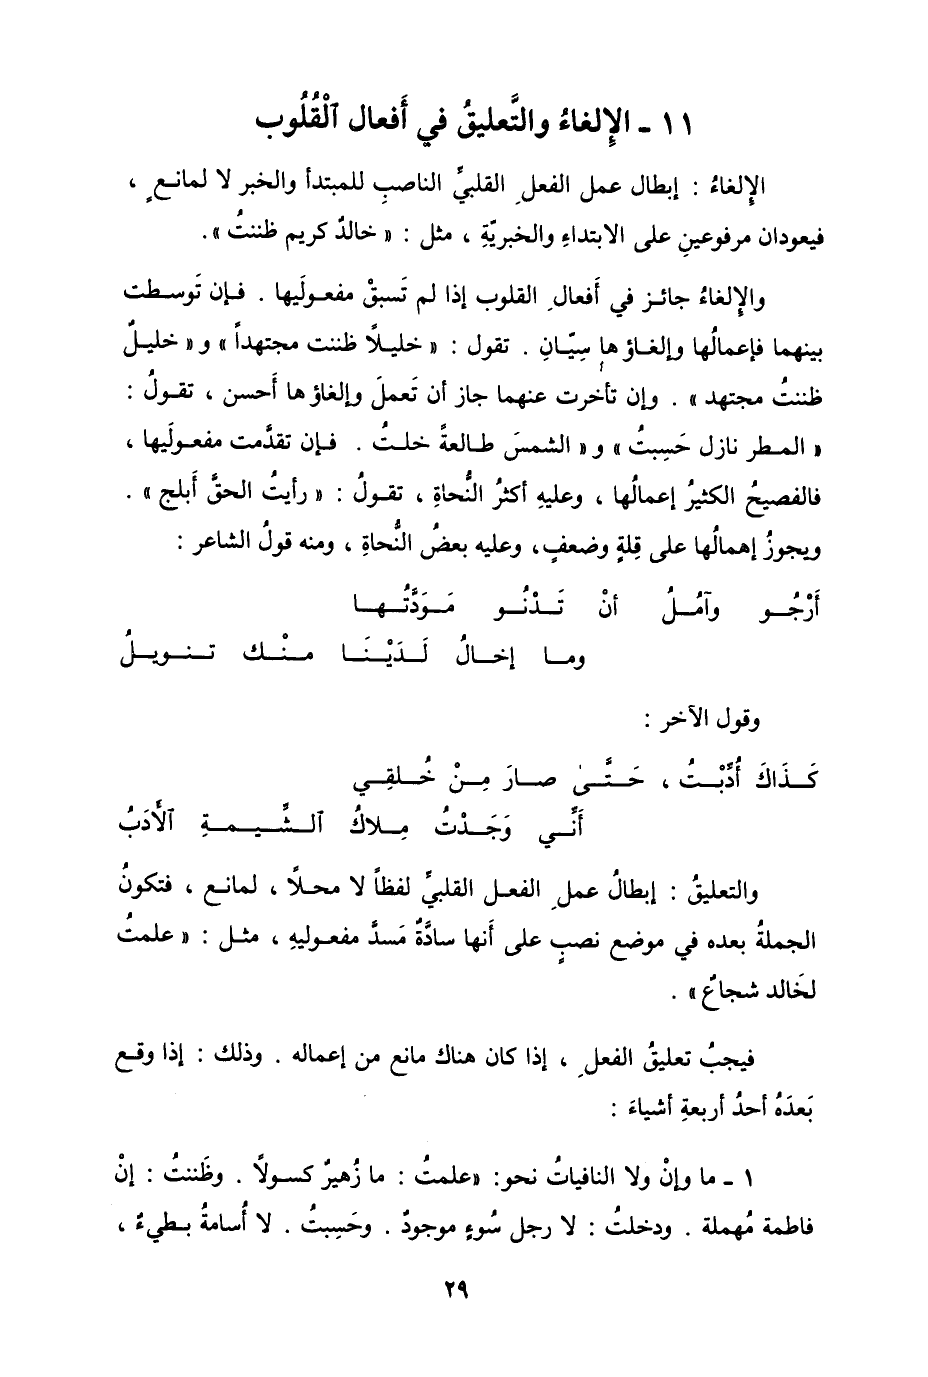 ١١ - الإِلغاءُ والتَّعليقُ في أَفعال ٱلْقُلُوب
الإِلغاءُ : إبطال عمل الفعلِ القلبيِّ الناصبِ للمبتدأ والخبر لا لمانعٍ ،
فيعودان مرفوعينِ على الابتداءِ والخبريّةِ ، مثل : « خالدٌ كريم ظننتُ ».
والإِلغاءُ جائز في أَفعالِ القلوب إذا لم تَسبقْ مفعولَيها . فإن تَوسطت
بينهما فإعمالُها وإلغاؤها سِيّانِ . تقول : « خليلًا ظننت مجتهداً » و « خليلٌ
ظننتُ مجتهد » . وإن تأخرت عنهما جاز أن تَعملَ وإلغاؤها أَحسن ، تقولُ :
« المطر نازل حَسِبتُ » و « الشمسَ طالعةً خلتُ . فإن تقدَّمت مفعولَيها ،
فالفصيحُ الكثيرُ إعمالُها ، وعليهِ أكثرُ النُّحاةِ ، تقولُ : « رأيتُ الحقَّ أَبلج » .
ويجوزُ إهمالُها على قِلةٍ وضعفٍ، وعليه بعضُ النُّحاةِ ، ومنه قولُ الشاعر :
أَرْجُو وآمُلُ أنْ تَدْنُو مَوَدَّتُها
وما إخالُ لَدَيْنَا منْك تنويلُ
وقول الآخر :
كَذَاكَ أُدِّبْتُ ، حَتَّىٰ صارَ مِنْ خُلقِي
أَنِّي وَجَدْتُ مِلاكُ ٱلشِّيمةِ ٱلأَدَبُ
والتعليقُ : إبطالُ عملِ الفعل القلبيِّ لفظاً لا محلاً ، لمانع ، فتكونُ
الجملةُ بعده في موضع نصبٍ على أَنها سادَّةٌ مَسدَّ مفعوليهِ ، مثل : « علمتُ
لخَالد شجاعٌ » .
فيجبُ تعليقُ الفعلِ ، إذا كان هناك مانع من إعماله . وذلك : إذا وقع
بَعدَهُ أحدُ أربعةِ أشياءَ :
١ - ما وإنْ ولا النافياتُ نحو: «علمتُ : ما زُهيرٌ كسولًا . وظَننتُ : إنْ
فاطمة مُهملة . ودخلتُ : لا رجل سُوءٍ موجودٌ . وحَسِبتُ . لا أُسامةُ بطيءٌ ،
٢٩